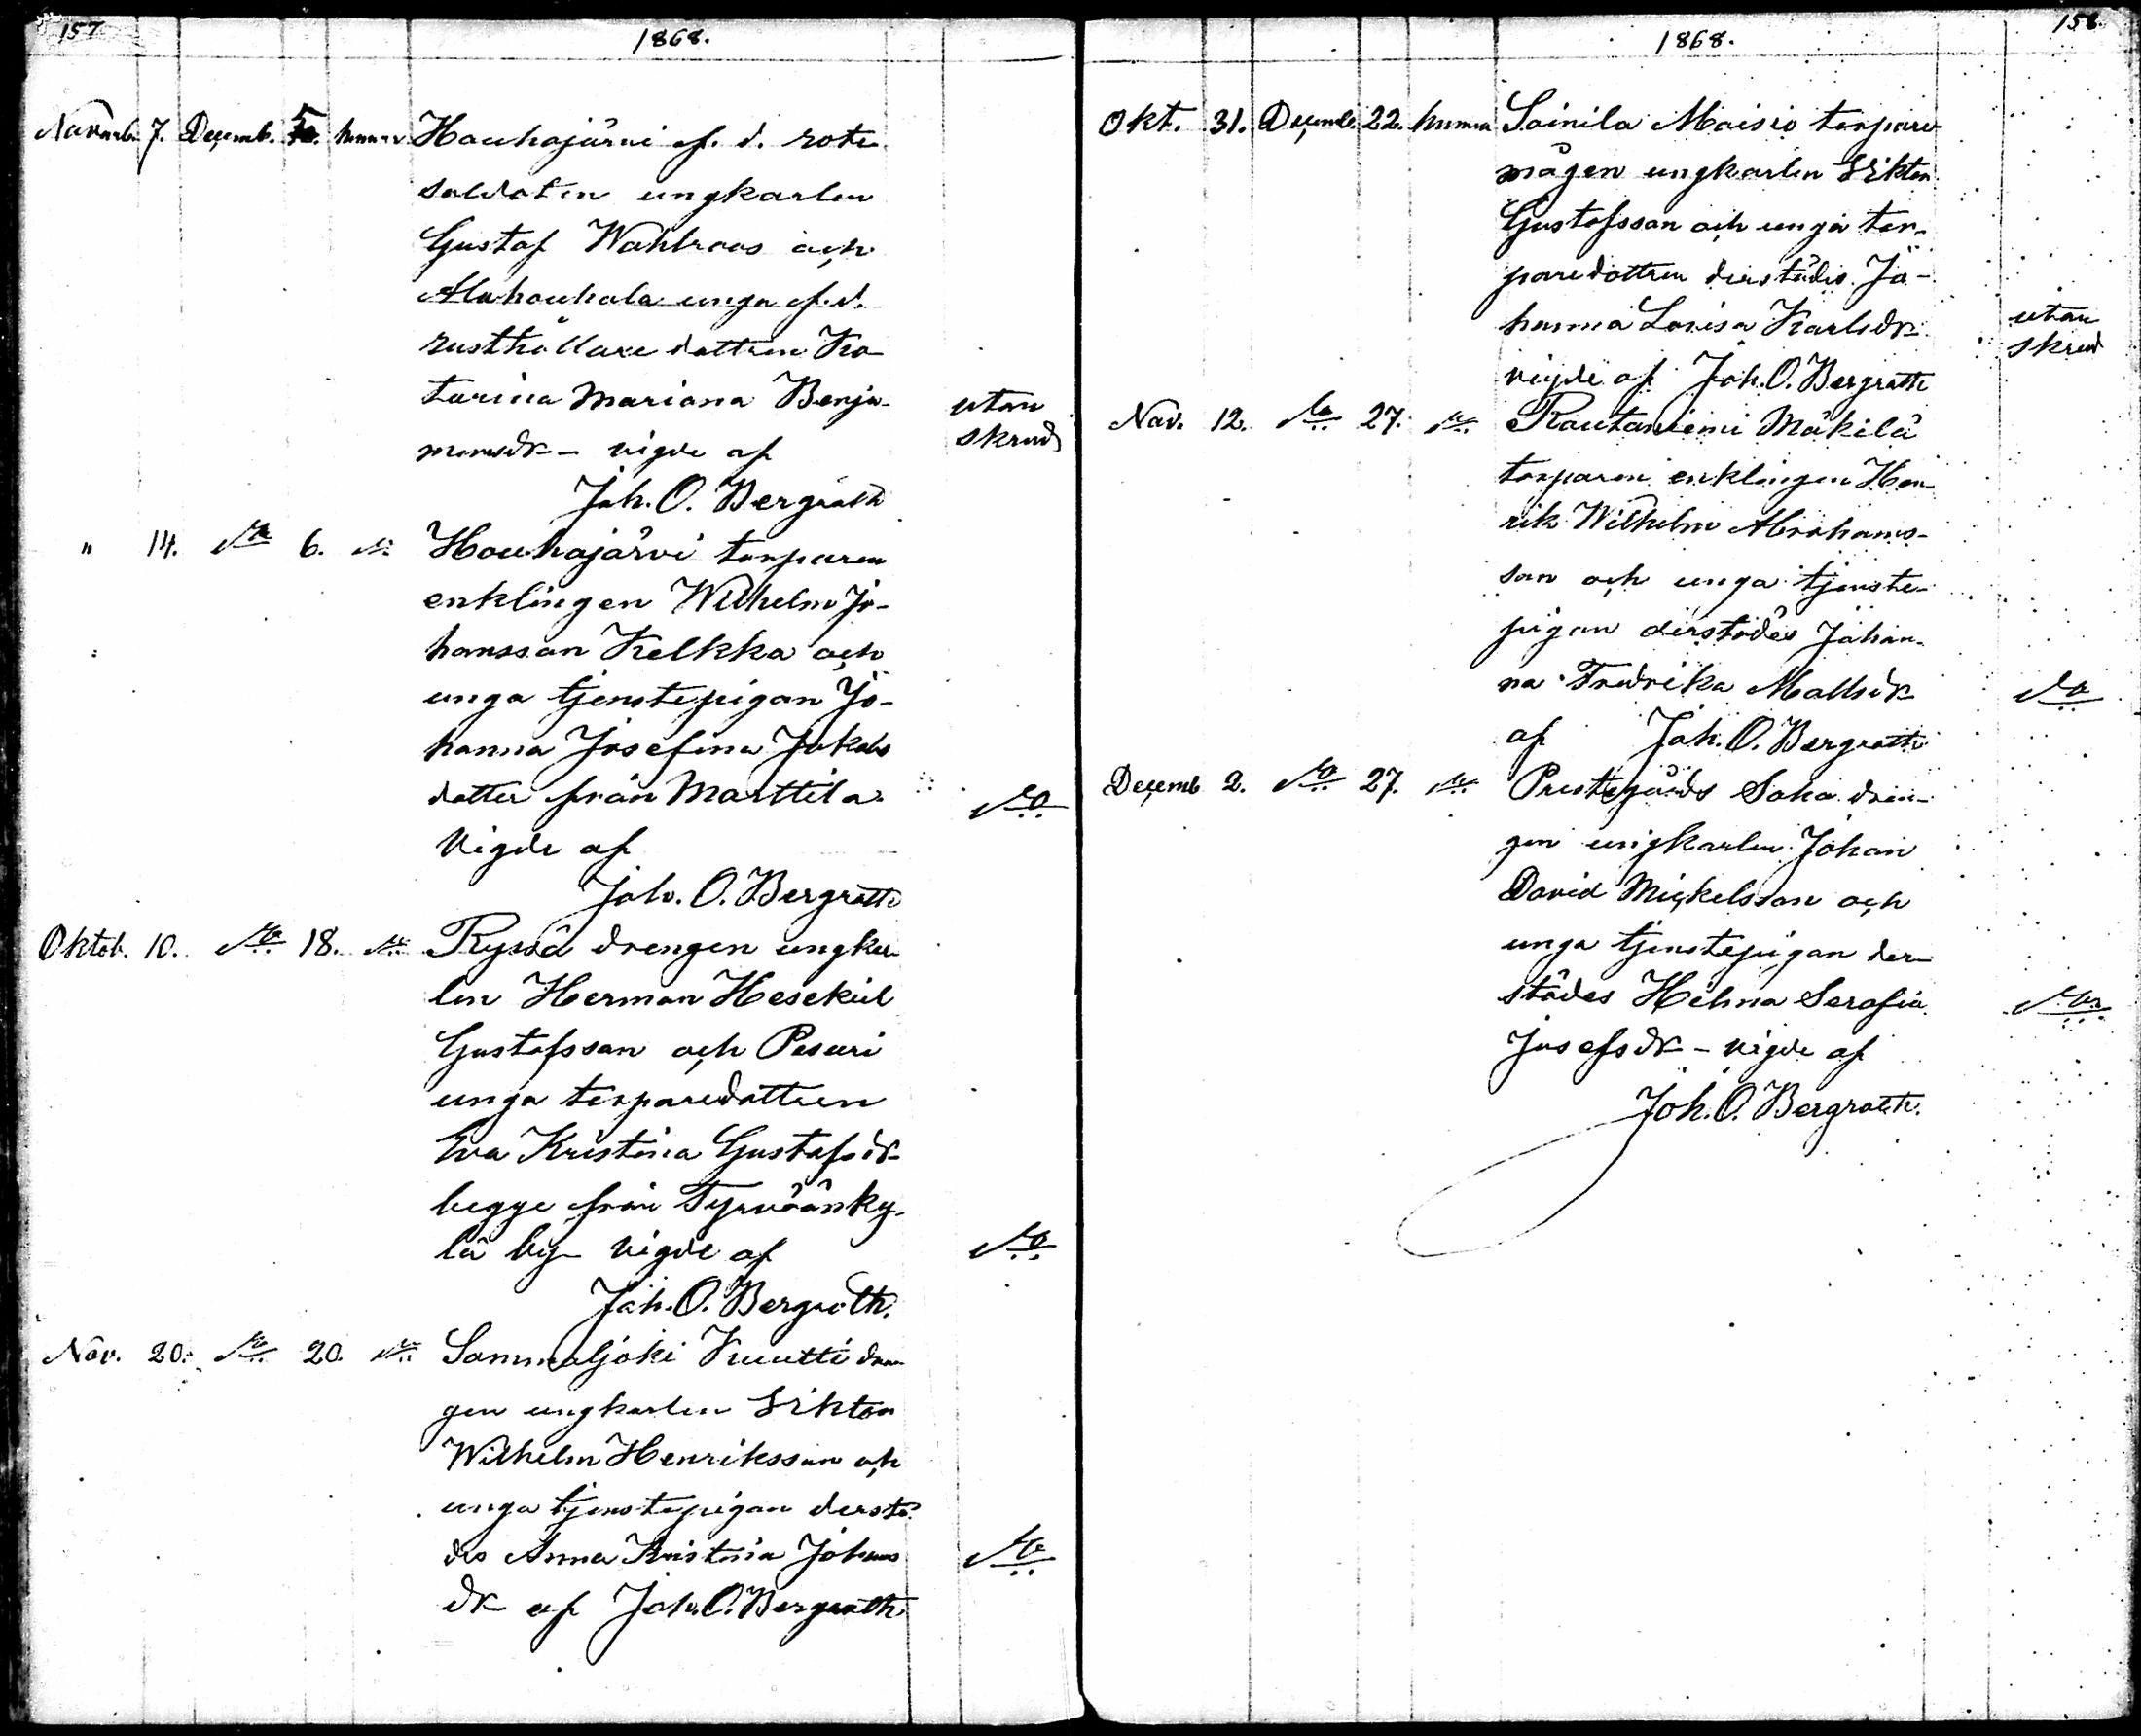 157
1868.
Novemb. 7. Decemb. 5. Houhajärvi f. d. rote
soldaten ungkarlen
Gustaf Wahlroos och
Alahouhala unga f. d.
rusthållare dottren Ka-
tarina Mariana Benja-
minsdr – vigde af
utan
skrud
Joh. O. Bergroth
" 14. do 6. do Houhajärvi torparen
enklingen Wilhelm Jo-
hansson Kelkka och
unga tjenstepigan Jo-
hanna Josefina Jakobs
dotter från Marttila
do
vigde af
Joh. O. Bergroth
Oktob. 10. do 18. do Ryssä drengen ungkar
len Herman Hesekiel
Gustafsson och Pesuri
unga torparedottren
Eva Kristina Gustafsdr
begge från Tyrväänky-
lä by – vigde af
do
Joh. O. Bergroth.
Nov. 20. do 20. do Sammaljoki Kuutti dren
gen ungkarlen Viktor
Wilhelm Henriksson och
unga tjenstepigan derstä
des Anna Kristina Johans
do
dr af Joh. O. Bergroth
158.
1868.
Okt. 31. Decemb. 22. Soinila Maisio torpare
mågen ungkarlen Viktor
Gustafsson och unga tor-
paredottren derstädes Jo-
hanna Lovisa Karlsdr
utan
skrud
vigde af Joh. O. Bergroth
Nov. 12. do 27. do Rautaniemi Mäkilä
torparen enklingen Hen-
rik Wilhelm Abrahams-
son och unga tjenste-
pigan derstädes Johan-
na Fredrika Mattsdr
do
af Joh. O. Bergroth
Decemb 2. do 27. do Prestegårds Saha dren-
gen ungkarlen Johan
David Mickelsson och
unga tjenstepigan der-
städes Helma Serafia
do
Josefsdr – vigde af
Joh. O. Bergroth.